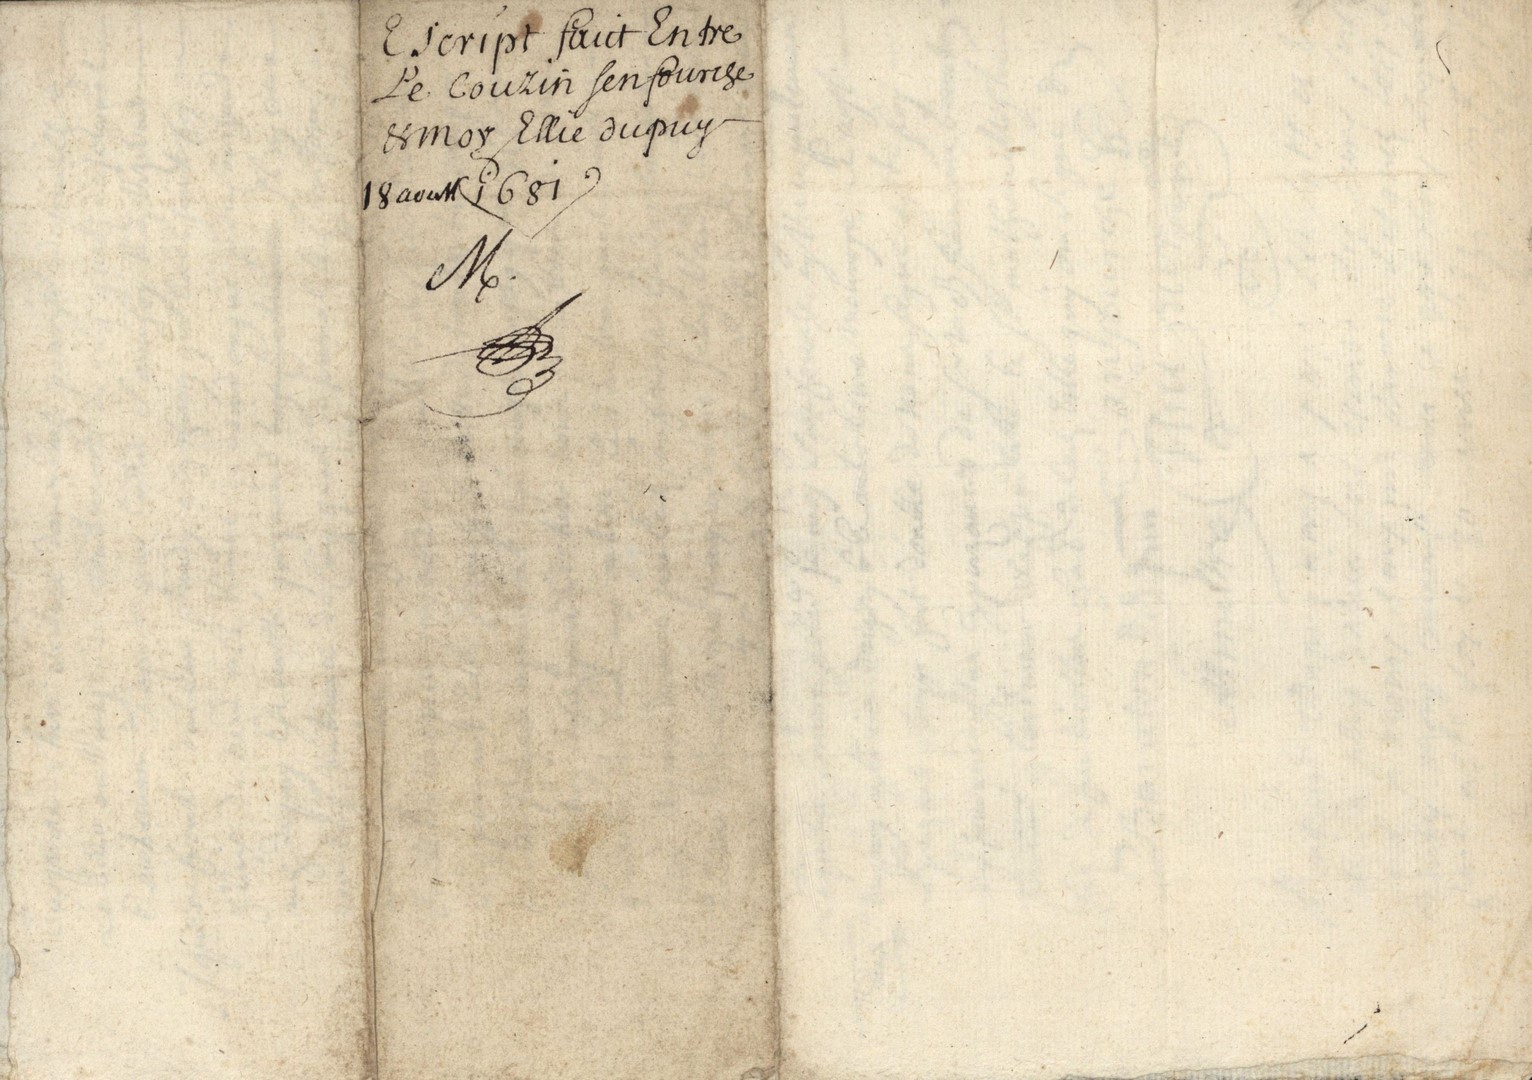 Escript faict Entre
Le Couzin Senfourche
& moy Ellie dupuy
18 aoust 1681
M.